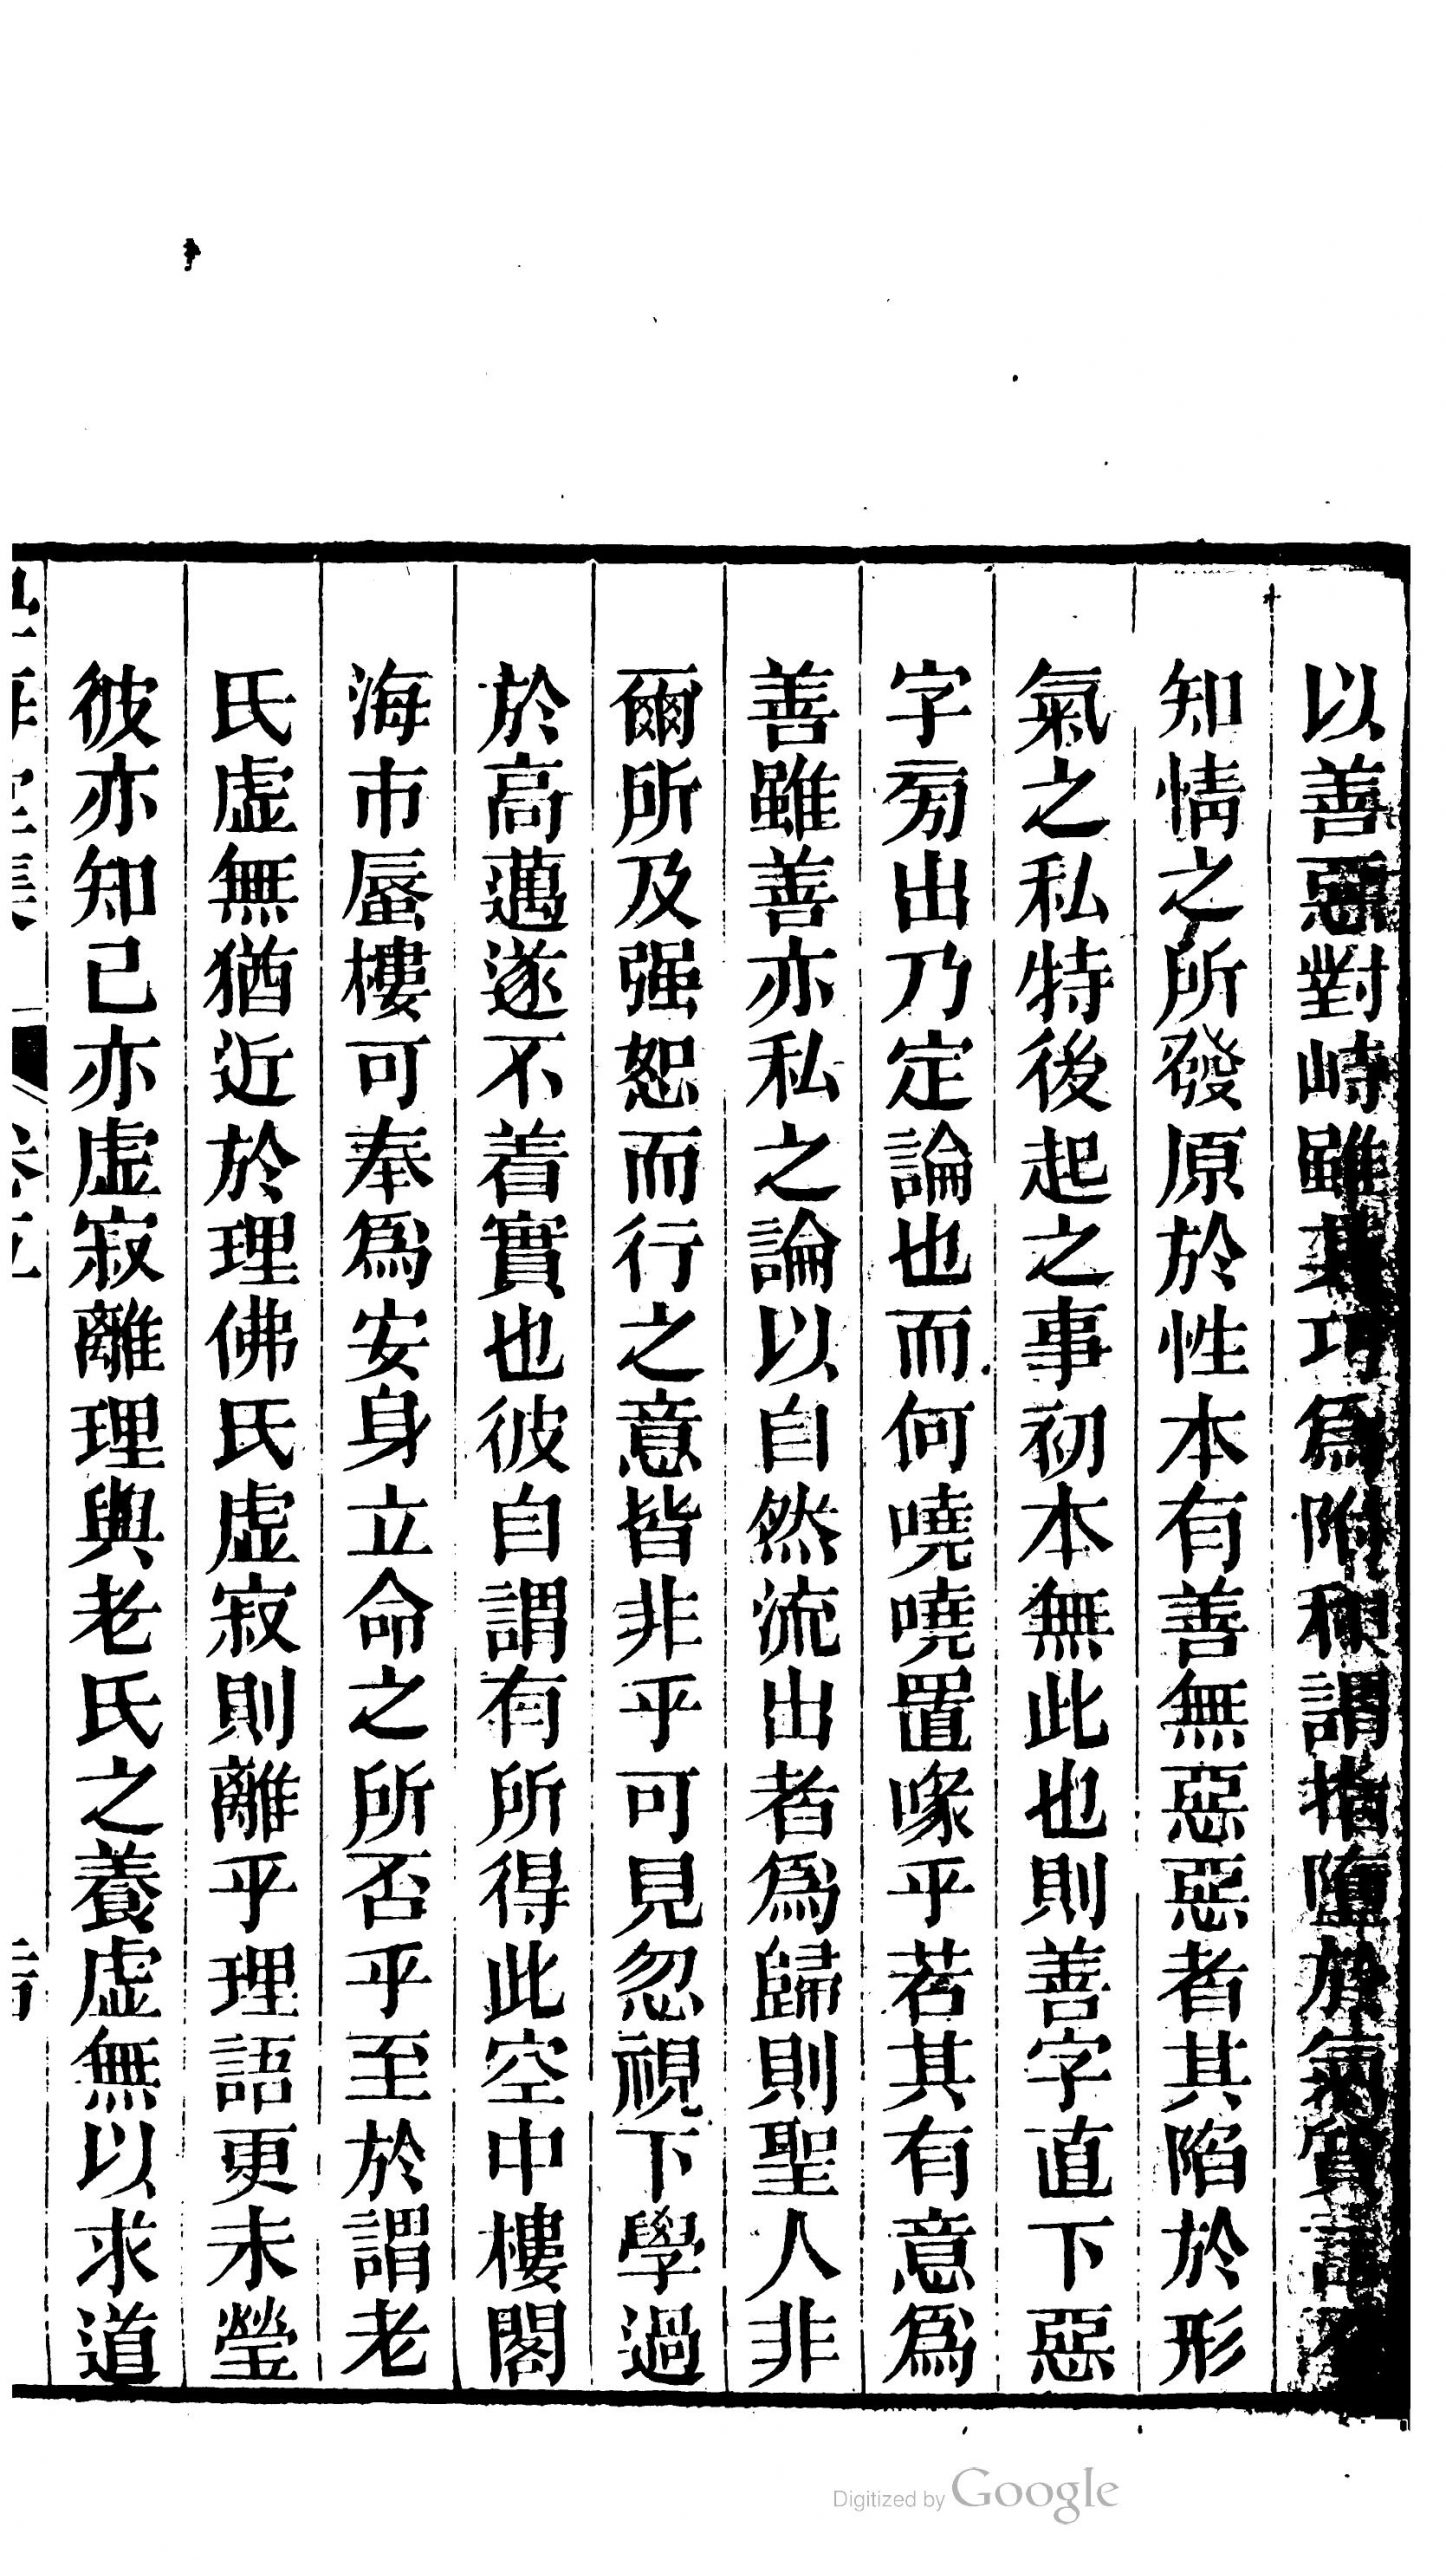 以善惡對峙雖其巧爲附和謂指墮於氣質言不
知情之所發原於性本有善無惡惡者其陷於形
氣之私特後起之事初本無此也則善字直下惡
字旁出乃定論也而何嘵嘵置喙乎若其有意爲
善雖善亦私之論以自然流出者爲歸則聖人非
爾所及强恕而行之意皆非乎可見忽視下學過
於高邁遂不着實也彼自謂有所得此空中樓閣
海市蜃樓可奉爲安身立命之所否乎至於謂老
氏虛無猶近於理佛氏虛寂則離乎理語更未瑩
彼亦知己亦虛寂離理與老氏之養虛無以求道
Digitized by Google